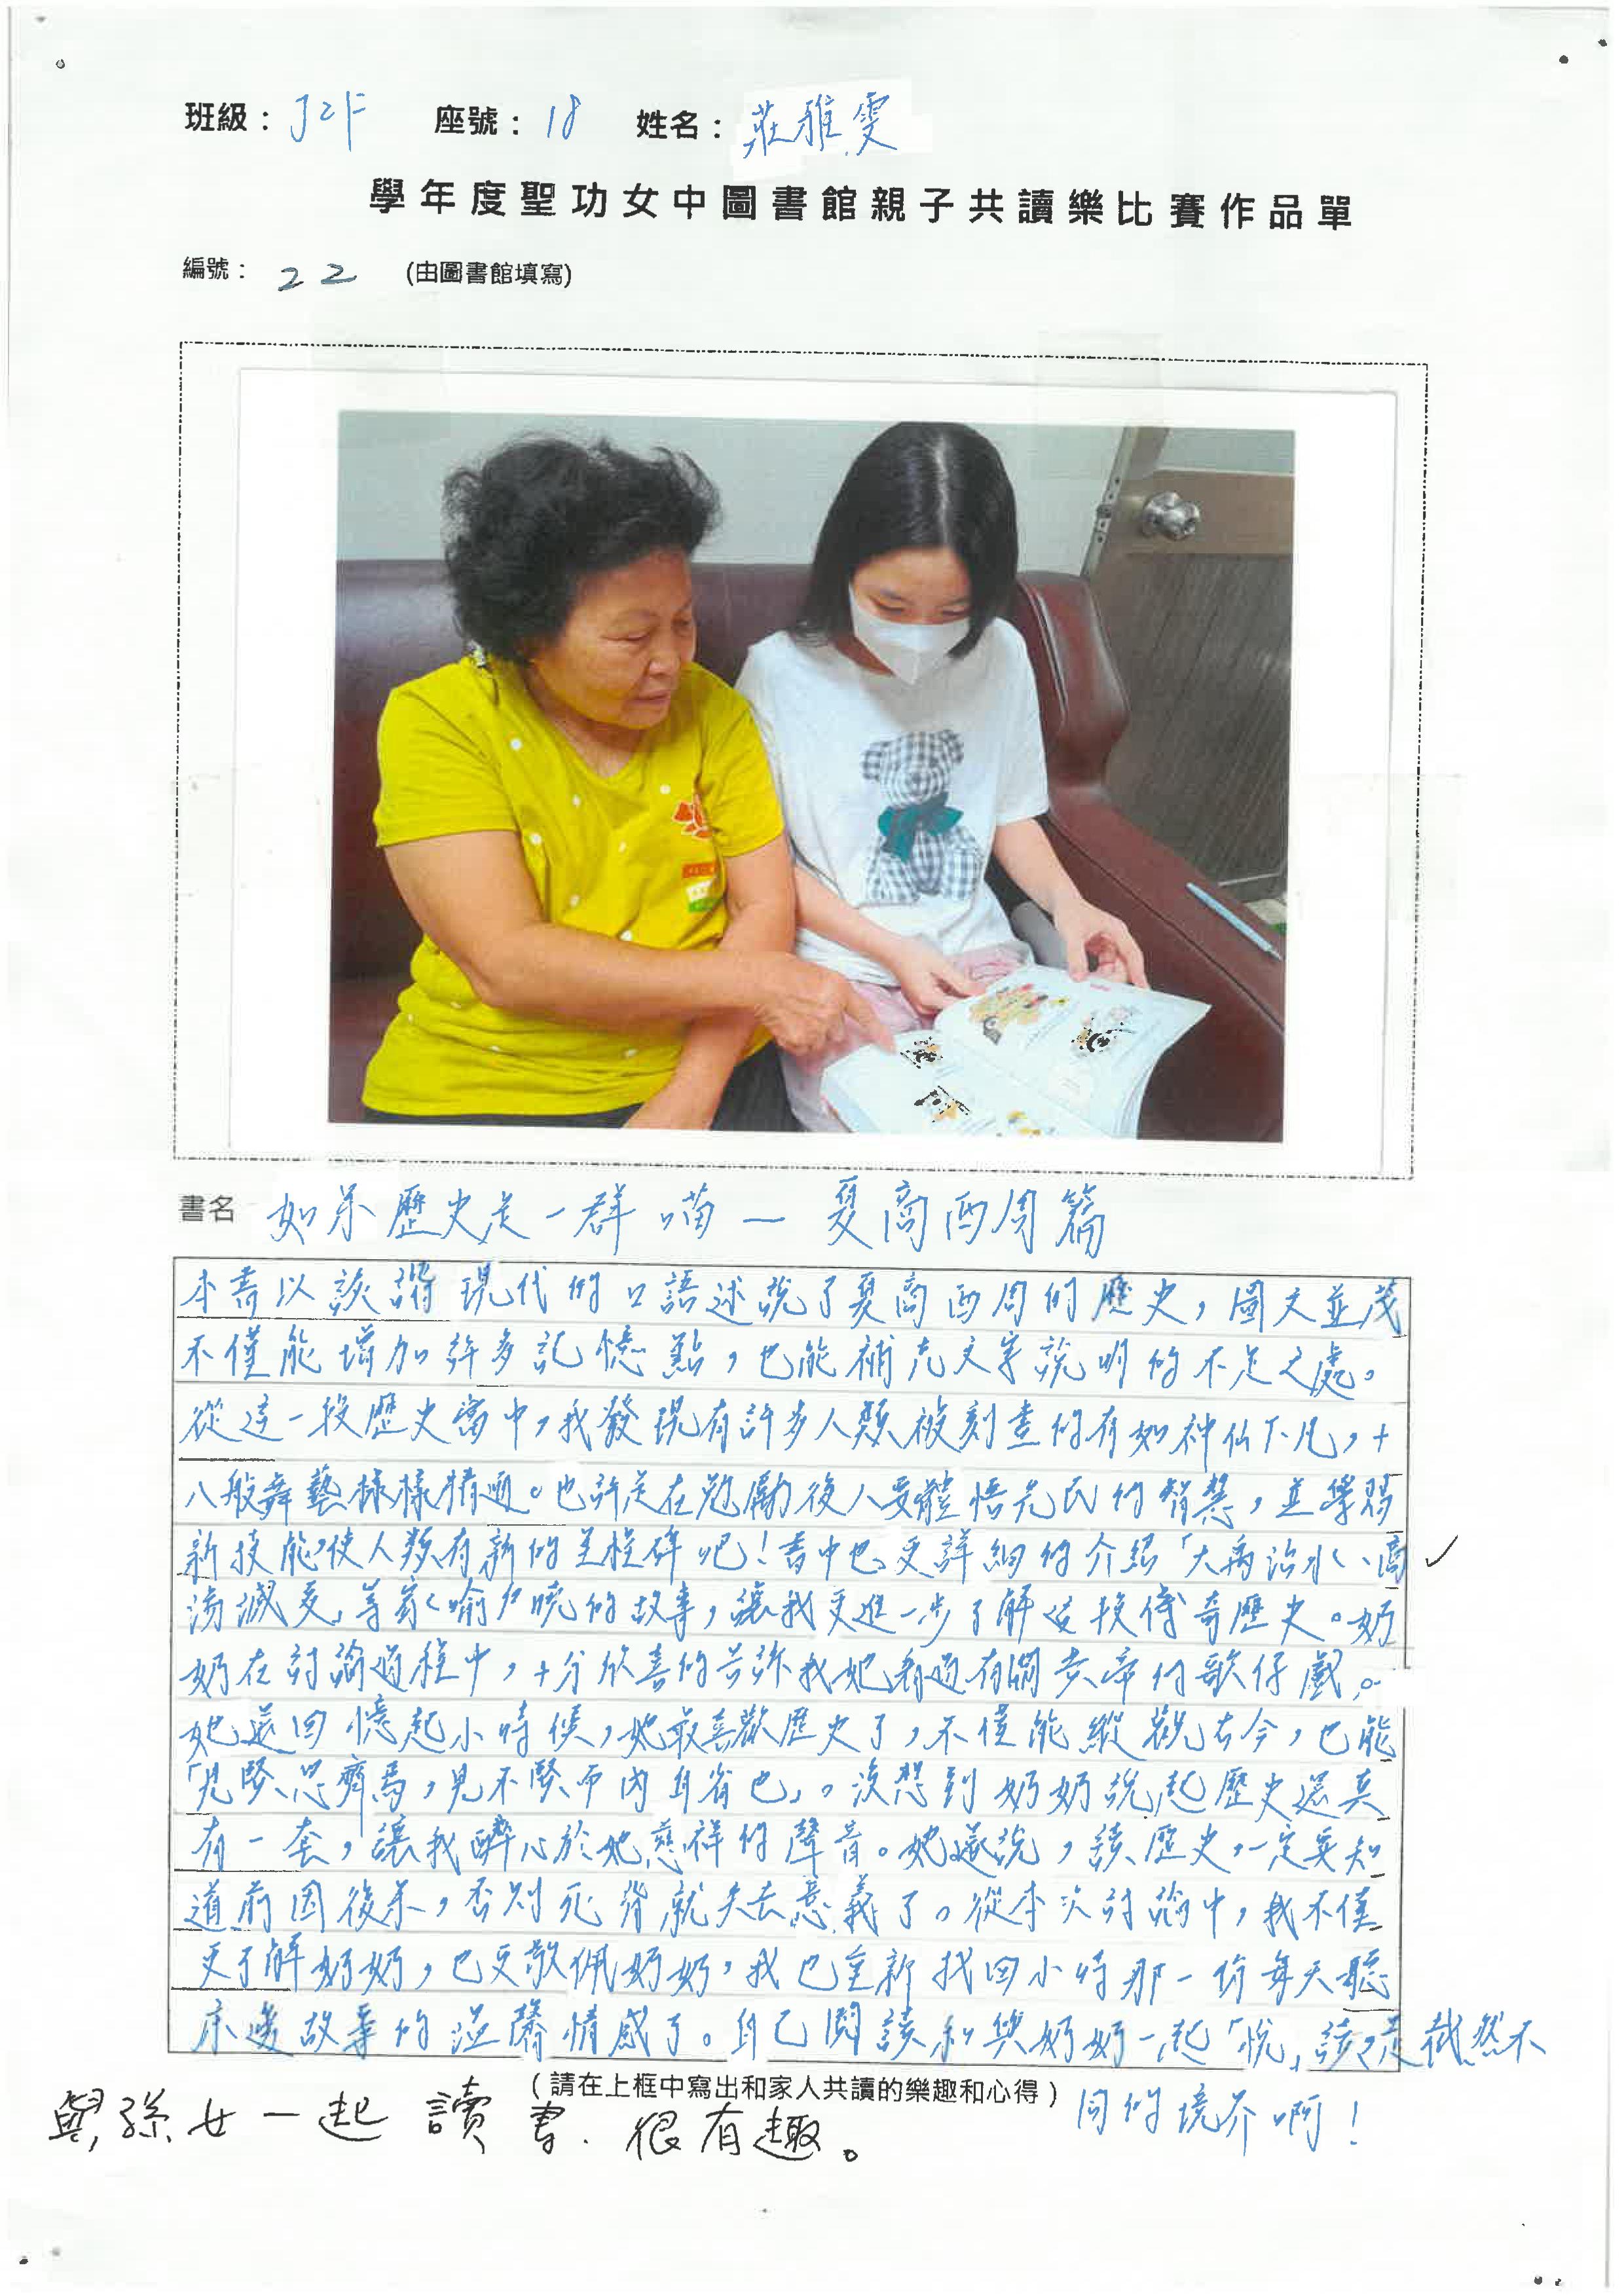 班級：J2F 座號：18 姓名：莊雅雯
學年度聖功女中圖書館親子共讀樂比賽作品單
編號：22 (由圖書館填寫)
書名 如果歷史是一群喵—夏商西周篇
本書以詼諧現代的口語述說了夏商西周的歷史，圖文並茂
不僅能增加許多記憶點，也能補充文字說明的不足之處。
從這一段歷史當中，我發現有許多人類被刻畫的有如神仙下凡，十
八般舞藝樣樣精通。也許是在勉勵後人要體悟先民的智慧，並學習
新技能，使人類有新的里程碑吧！書中也更詳細的介紹「大禹治水、商
湯滅夏」等家喻戶曉的故事，讓我更進一步了解這段傳奇歷史。奶
奶在討論過程中，十分欣喜的告訴我她看過有關黃帝的歌仔戲。
她還回憶起小時候，她最喜歡歷史了，不僅能縱觀古今，也能
「見賢思齊焉，見不賢而內自省也」。沒想到奶奶說起歷史還真
有一套，讓我醉心於她慈祥的聲音。她還說，讀歷史，一定要知
道前因後果，否則死背就失去意義了。從本次討論中，我不僅
更了解奶奶，也更敬佩奶奶，我也重新找回小時那一份每天聽
床邊故事的溫馨情感了。自己閱讀和與奶奶一起「悅」讀，是截然不
同的境界啊！
(請在上框中寫出和家人共讀的樂趣和心得)
與孫女一起讀書．很有趣。